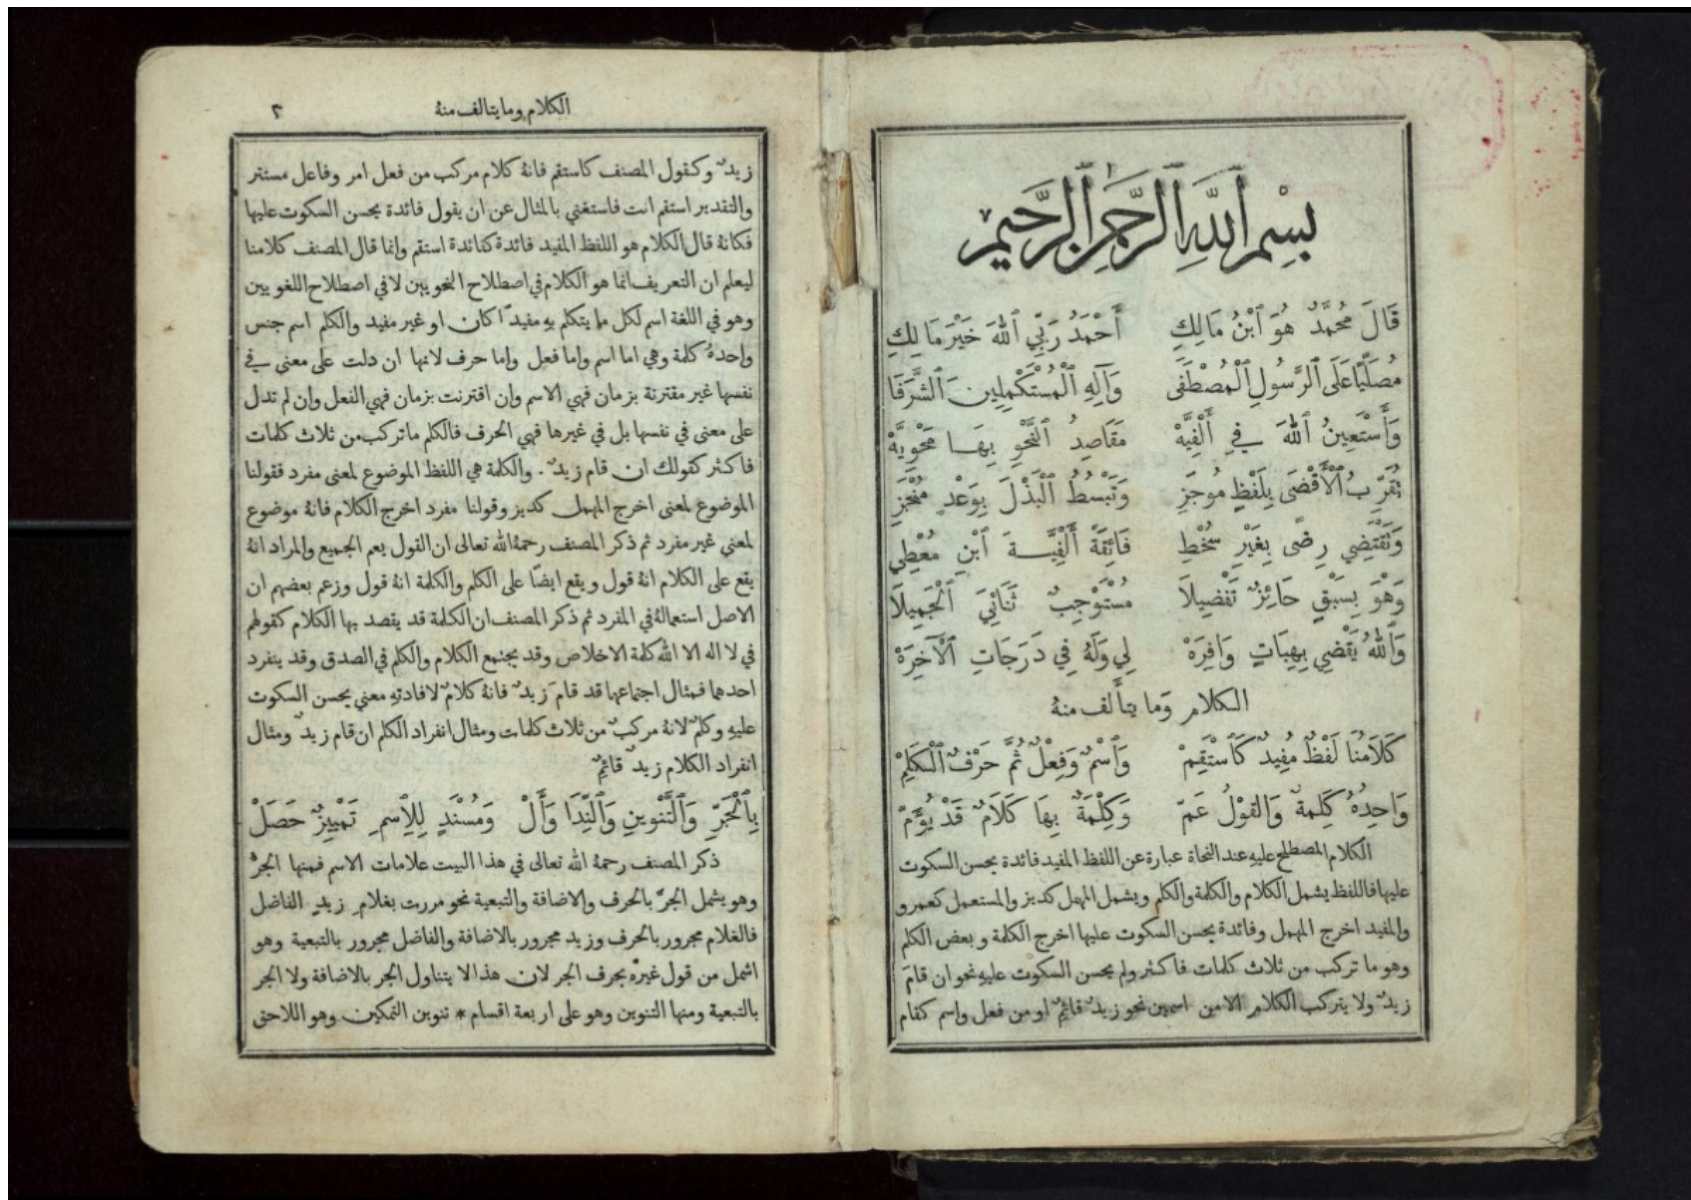 بِسْمِ ٱللَّهِ ٱلرَّحْمٰنِ ٱلرَّحِيمِ
قَالَ مُحَمَّدٌ هُوَ ٱبْنُ مَالِكِ أَحْمَدُ رَبِّي ٱللهَ خَيْرَ مَالِكِ
مُصَلِّيًا عَلَى ٱلرَّسُولِ ٱلْمُصْطَفَى وَآلِهِ ٱلْمُسْتَكْمِلِينَ ٱلشَّرَفَا
وَأَسْتَعِينُ ٱللهَ فِي أَلْفِيَّهْ مَقَاصِدُ ٱلنَّحْوِ بِهَا مَحْوِيَّهْ
تُقَرِّبُ ٱلْأَقْصَى بِلَفْظٍ مُوجَزِ وَتَبْسُطُ ٱلْبَذْلَ بِوَعْدٍ مُنْجَزِ
وَتَقْتَضِي رِضًى بِغَيْرِ سُخْطِ فَائِقَةً أَلْفِيَّةَ ٱبْنِ مُعْطِي
وَهْوَ بِسَبْقٍ حَائِزٌ تَفْضِيلَا مُسْتَوْجِبٌ ثَنَائِيَ ٱلْجَمِيلَا
وَٱللهُ يَقْضِي بِهِبَاتٍ وَافِرَهْ لِي وَلَهُ فِي دَرَجَاتِ ٱلْآخِرَهْ
الكلام وَما يتأَلف منهُ
كَلَامُنَا لَفْظٌ مُفِيدٌ كَٱسْتَقِمْ وَٱسْمٌ وَفِعْلٌ ثُمَّ حَرْفٌ ٱلْكَلِمْ
وَاحِدُهُ كَلِمةٌ وَالقَوْلُ عَمّ وَكِلْمَةٌ بِهَا كَلَامٌ قَدْ يُؤَمّْ
الكلام المصطلح عليهِ عند النحاة عبارة عن اللفظ المفيد فائدة يحسن السكوت
عليها فاللفظ يشمل الكلام والكلمة والكلم ويشمل المهمل كديز والمستعمل كعمرو
والمفيد اخرج المهمل وفائدة يحسن السكوت عليها اخرج الكلمة وبعض الكلم
وهو ما تركب من ثلاث كلمات فاكثر ولم يحسن السكوت عليهِ نحو ان قامَ
زيدٌ ولا يتركب الكلام الا من اسمين نحو زيدٌ قائمٌ او من فعل واسم كقام
الكلام وما يتالف منهُ ٣
زيدٌ وكقول المصنف كاستقم فانهُ كلام مركب من فعل امر وفاعل مستتر
والتقدير استقم انت فاستغني بالمثال عن ان يقول فائدة يحسن السكوت عليها
فكانهُ قال الكلام هو اللفظ المفيد فائدة كفائدة استقم وانما قال المصنف كلامنا
ليعلم ان التعريف انما هو الكلام في اصطلاح النحويين لا في اصطلاح اللغويين
وهو في اللغة اسم لكل ما يتكلم بهِ مفيدًا كان او غير مفيد والكلم اسم جنس
واحدهُ كلمة وهي اما اسم واما فعل واما حرف لانها ان دلت على معنى في
نفسها غير مقترنة بزمان فهي الاسم وان اقترنت بزمان فهي الفعل وان لم تدل
على معنى في نفسها بل في غيرها فهي الحرف فالكلم ما تركب من ثلاث كلمات
فاكثر كقولك ان قام زيدٌ . والكلمة هي اللفظ الموضوع لمعنى مفرد فقولنا
الموضوع لمعنى اخرج المهمل كديز وقولنا مفرد اخرج الكلام فانهُ موضوع
لمعنى غير مفرد ثم ذكر المصنف رحمهُ الله تعالى ان القول يعم الجميع والمراد انهُ
يقع على الكلام انهُ قول ويقع ايضًا على الكلم والكلمة انهُ قول وزعم بعضهم ان
الاصل استعمالهُ في المفرد ثم ذكر المصنف ان الكلمة قد يقصد بها الكلام كقولهم
في لا اله الا الله كلمة الاخلاص وقد يجتمع الكلام والكلم في الصدق وقد ينفرد
احدهما فمثال اجتماعهما قد قامَ زيدٌ فانهُ كلامٌ لافادتهِ معنى يحسن السكوت
عليهِ وكلمٌ لانهُ مركبٌ من ثلاث كلمات ومثال انفراد الكلم ان قام زيدٌ ومثال
انفراد الكلام زيدٌ قائمٌ
بِٱلْجَرِّ وَٱلتَّنْوِينِ وَٱلنِّدَا وَأَلْ وَمُسْنَدٍ لِلِٱسْمِ تَمْيِيزٌ حَصَلْ
ذكر المصنف رحمهُ الله تعالى في هذا البيت علامات الاسم فمنها الجرُّ
وهو يشمل الجرّ بالحرف والاضافة والتبعية نحو مررت بغلامِ زيدٍ الفاضل
فالغلام مجرور بالحرف وزيد مجرور بالاضافة والفاضل مجرور بالتبعية وهو
اشمل من قول غيرهِ بحرف الجر لان هذا لا يتناول الجر بالاضافة ولا الجر
بالتبعية ومنها التنوين وهو على اربعة اقسام * تنوين التمكين وهو اللاحق